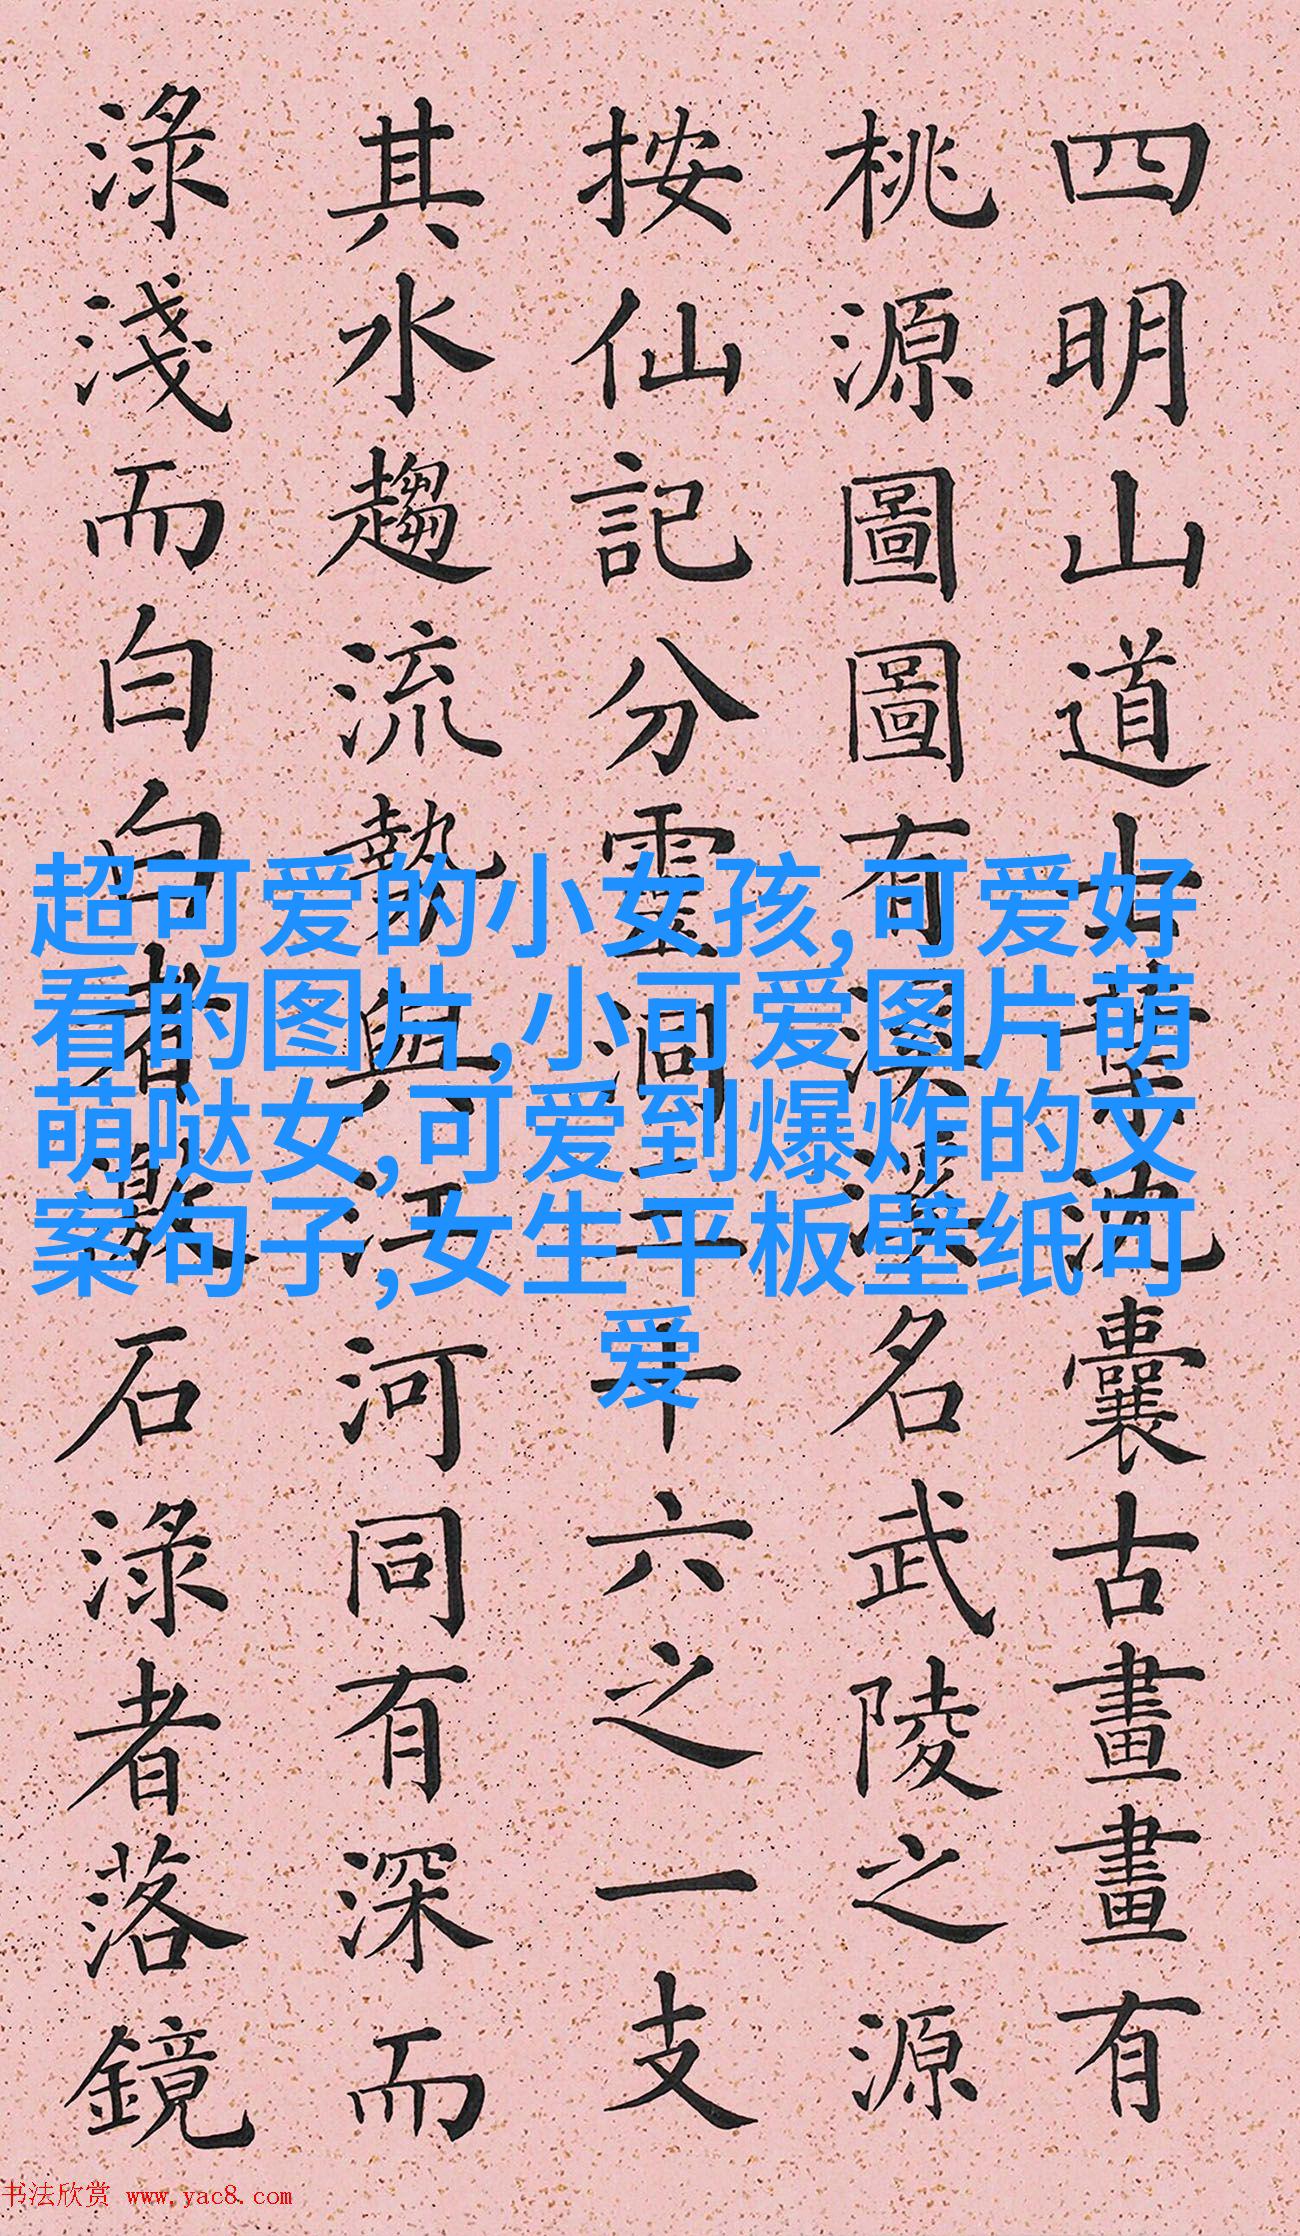 四明山道士葉沈囊古畫畫有
桃源圖圖有溪溪名武陵之源
按仙記分靈洞三十六之一支
其水趨流勢與江河同有深而
淥淺而白白者激石淥者落鏡
超可爱的小女孩,可爱好
看的图片,小可爱图片萌
萌哒女,可爱到爆炸的文
案句子,女生平板壁纸可
爱
书法欣赏 www.yac8.com